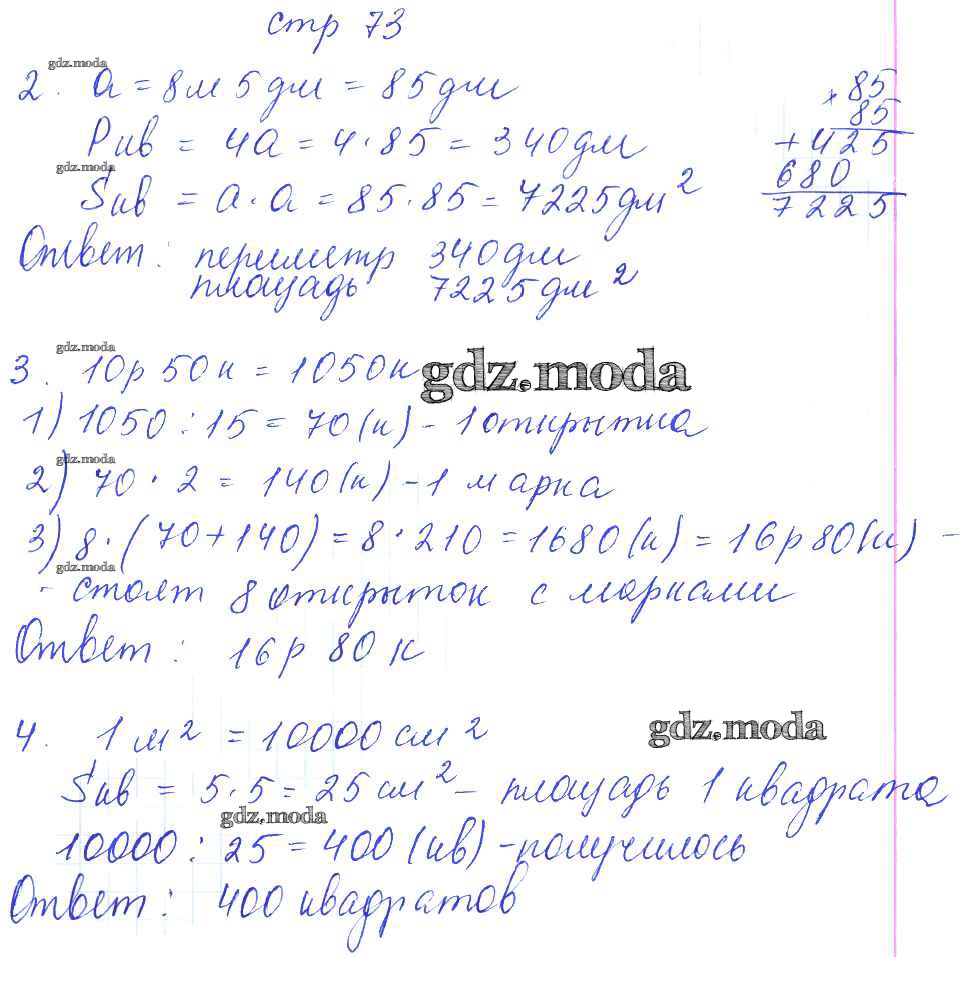 стр 73
gdz.moda
2. a = 8м 5дм = 85дм
Pкв = 4a = 4·85 = 340дм
gdz.moda
Sкв = a·a = 85·85 = 7225дм²
× 85
85
+ 425
680
7225
Ответ: периметр 340дм
площадь 7225дм²
gdz.moda
3. 10р 50к = 1050к
gdz.moda
1) 1050 : 15 = 70(к) - 1 открытка
gdz.moda
2) 70 · 2 = 140(к) - 1 марка
3) 8·(70+140) = 8·210 = 1680(к) = 16р 80(к) -
gdz.moda
- стоят 8 открыток с марками
Ответ: 16р 80к
4. 1 м² = 10000 см²
gdz.moda
Sкв = 5·5 = 25 см² - площадь 1 квадрата
gdz.moda
10000 : 25 = 400 (кв) - получилось
Ответ: 400 квадратов